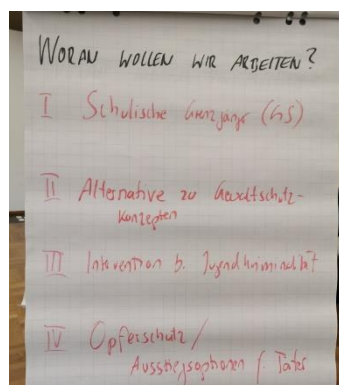 WORAN WOLLEN WIR ARBEITEN?
I Schulische Grenzgänge (GS)
II Alternative zu Gewaltschutz-
konzepten
III Intervention b. Jugendkriminalität
IV Opferschutz /
Ausstiegsoptionen f. Täter